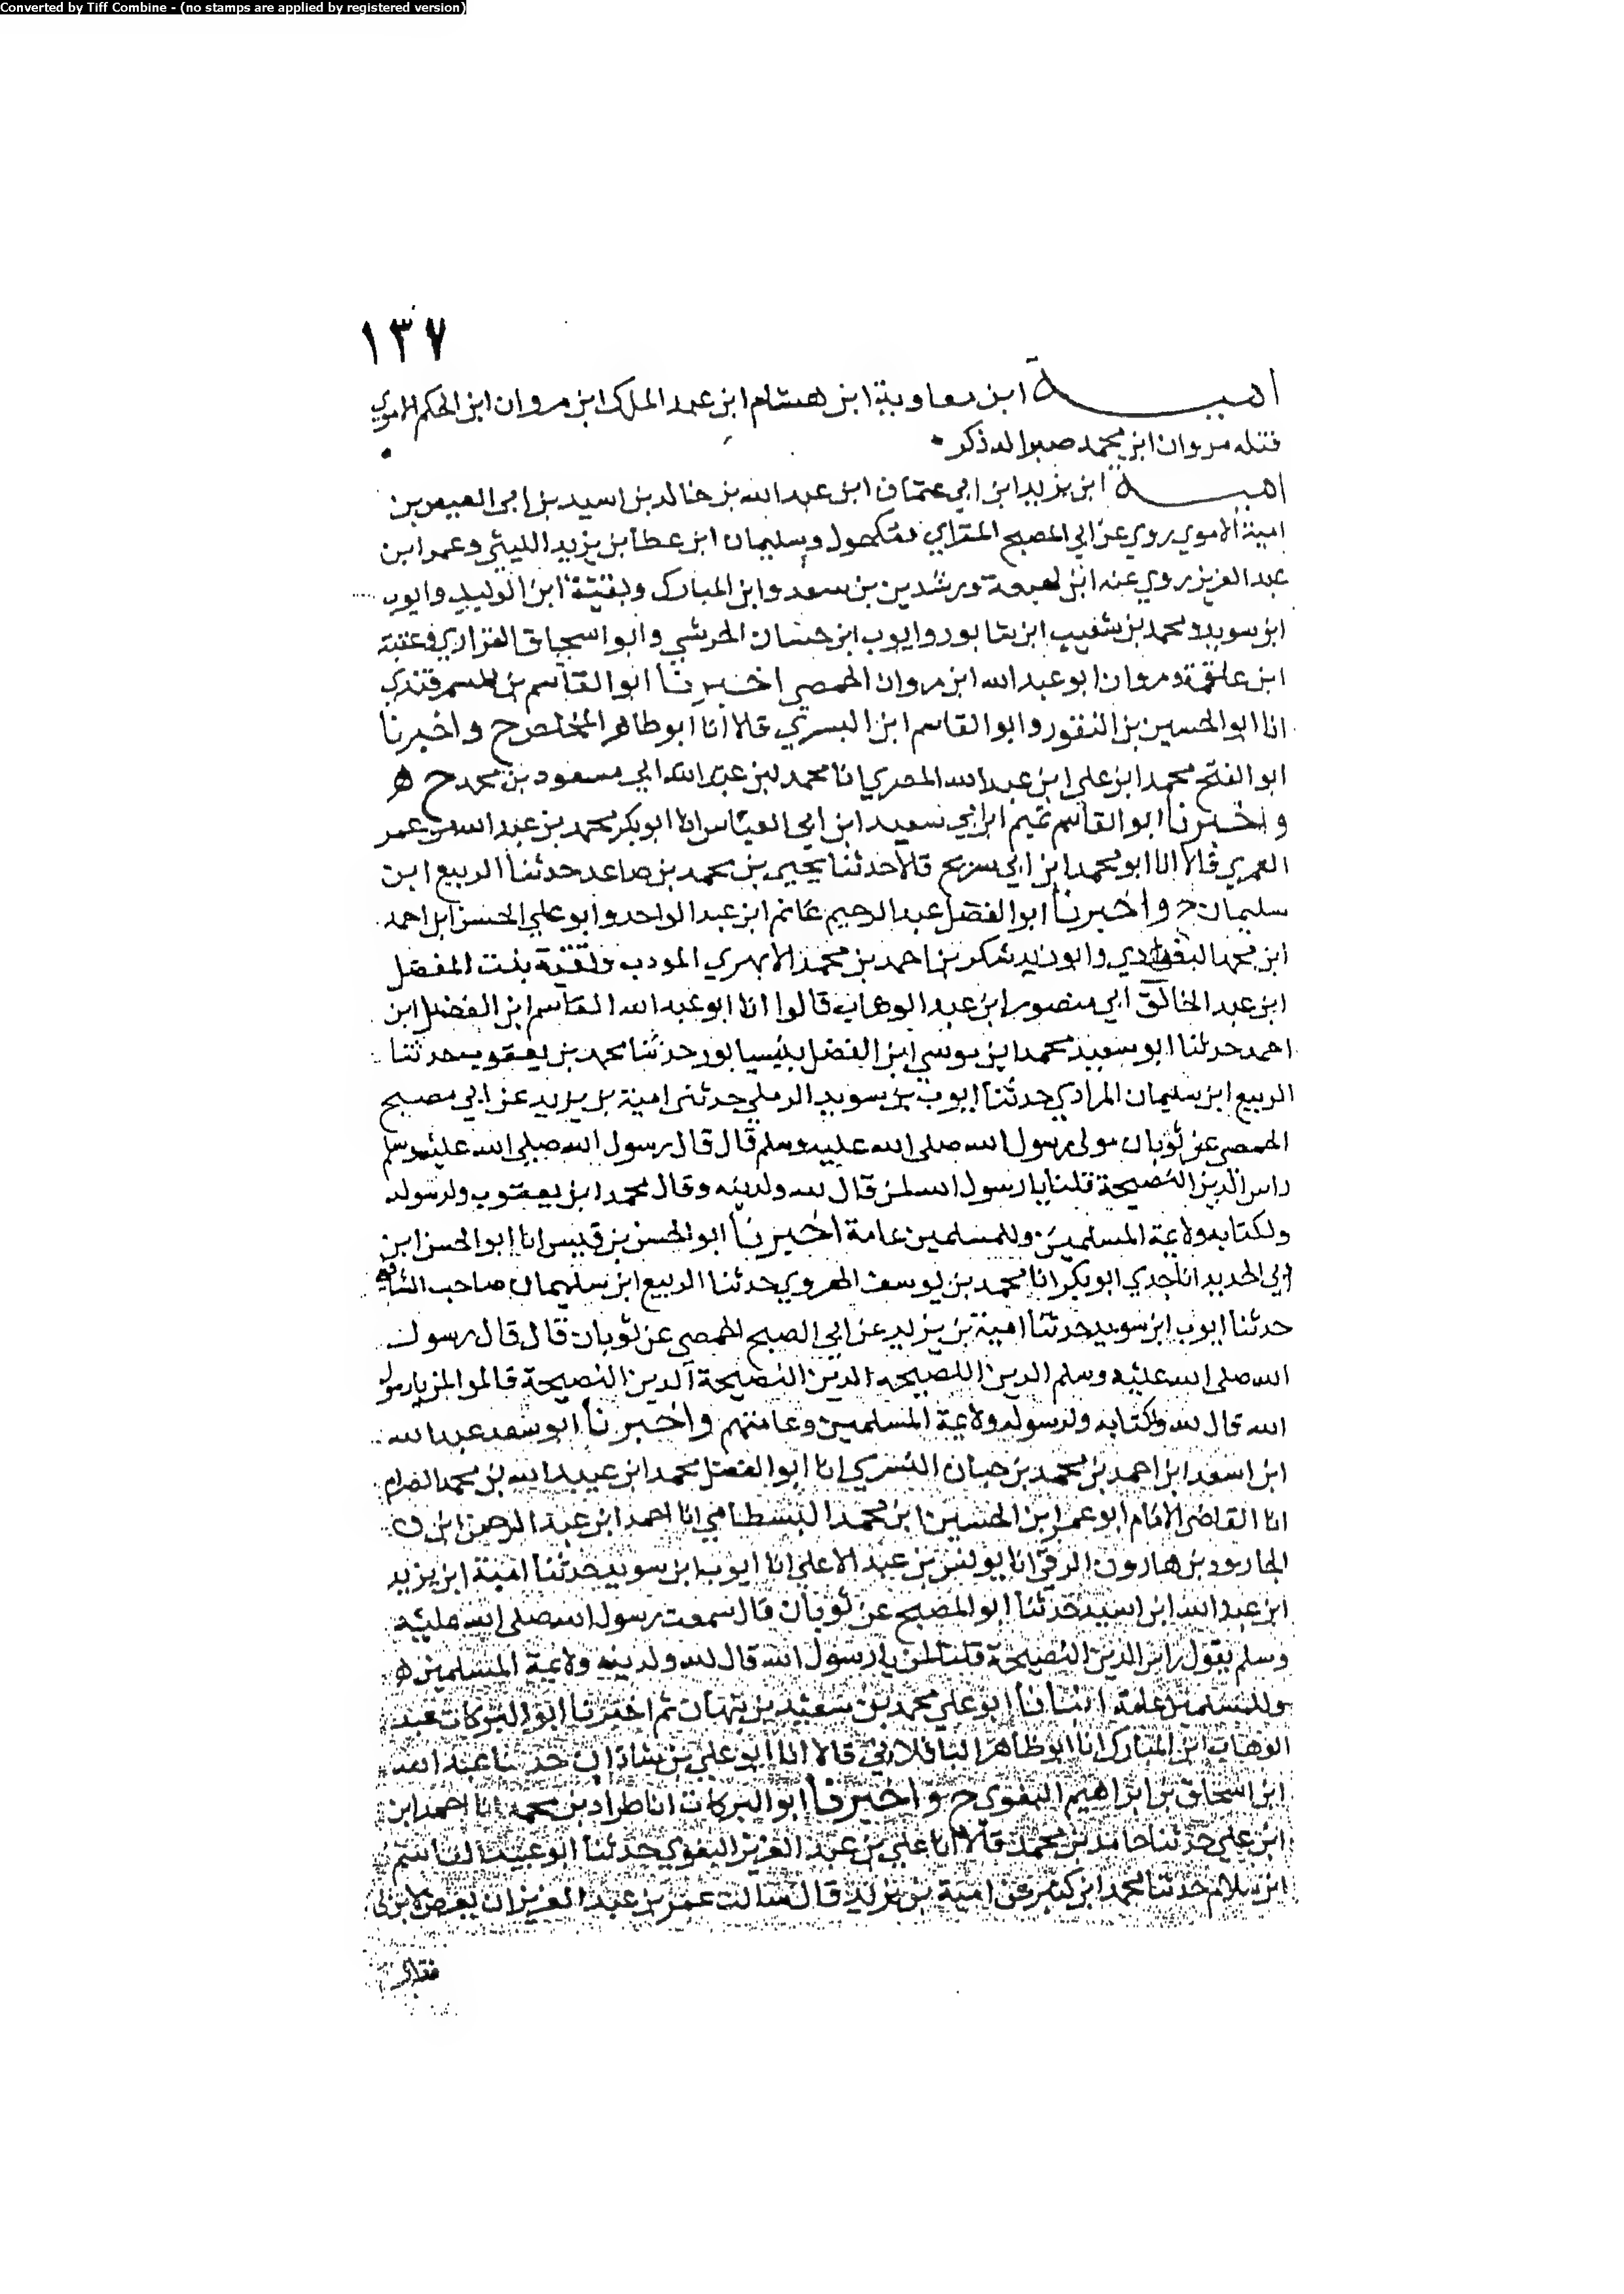 Converted by Tiff Combine - (no stamps are applied by registered version)
١٣٧
اميـــة ابن معاوية ابن هشام ابن عبد الملك ابن مروان ابن الحكم الاموي
قتله مروان ابن محمد صبرا له ذكر
اميـــة ابن يزيد ابن ابي عثمان ابن عبد الله بن خالد بن اسيد بن ابي العيص بن
امية الاموي روي عن ابي المصبح المقراي ومكحول وسليمان ابن عطا بن يزيد الليثي وعمر ابن
عبد العزيز روي عنه ابن لهيعة ورشدين بن سعد وابن المبارك وبقية ابن الوليد وايوب
ابن سويد ومحمد بن شعيب ابن شابور وايوب ابن حسان الحرشي وابو اسحاق الفزاري وعتبة
ابن علقمة ومروان ابو عبد الله ابن مروان الحمصي اخبرنا ابو القاسم بن السمرقندي
انا ابو الحسين بن النقور وابو القاسم ابن البسري قالا انا ابو طاهر المخلص ح واخبرنا
ابو الفتح محمد ابن علي ابن عبد الله المصري انا محمد بن عبد الله ابي مسعود بن محمد ح ه
واخبرنا ابو القاسم تميم ابن ابي سعيد ابن ابي العباس انا ابو بكر محمد بن عبد الله بن عمر
العمري قالا انا ابو محمد ابن ابي سريح قالا حدثنا يحيى بن محمد بن صاعد حدثنا الربيع ابن
سليمان ح واخبرنا ابو الفضل عبد الرحيم غانم ابن عبد الواحد وابو علي الحسن ابن احمد
ابن محمد البغدادي وابو زيد شكر بن احمد بن محمد الابهري المودب وتقية بنت المفضل
ابن عبد الخالق ابي منصور ابن عبد الوهاب قالوا انا ابو عبد الله القاسم ابن الفضل ابن
احمد حدثنا ابو سعيد محمد ابن موسي ابن الفضل بنيسابور حدثنا محمد بن يعقوب حدثنا
الربيع ابن سليمان المرادي حدثنا ايوب بن سويد الرملي حدثني امية بن يزيد عن ابي مصبح
الحمصي عن ثوبان مولى رسول الله صلى الله عليه وسلم قال قال رسول الله صلى الله عليه وسلم
راس الدين النصيحة قلنا يا رسول الله لمن قال لله ولدينه وقال محمد ابن يعقوب ولرسوله
ولكتابه ولايمة المسلمين وللمسلمين عامة اخبرنا ابو الحسن بن قبيس انا ابو الحسن ابن
ابي الحديد انا جدي ابو بكر انا محمد بن يوسف الهروي حدثنا الربيع ابن سليمان صاحب الشافعي
حدثنا ايوب ابن سويد حدثنا امية بن يزيد عن ابي الصبح الحمصي عن ثوبان قال قال رسول
الله صلى الله عليه وسلم الدين النصيحة الدين النصيحة الدين النصيحة قالوا لمن يا رسول
الله قال لله ولكتابه ولرسوله ولايمة المسلمين وعامتهم واخبرنا ابو سعد عبد الله
ابن اسعد ابن احمد بن محمد بن حبان النسوي انا ابو الفضل محمد ابن عبيد الله بن محمد الصرام
انا القاضي الامام ابو عمر ابن الحسين ابن محمد البسطامي انا احمد ابن عبد الرحمن ابن
الجارود بن هارون الرقي انا يونس بن عبد الاعلي انا ايوب ابن سويد حدثنا امية ابن يزيد
ابن عبد الله ابن اسيد حدثنا ابو المصبح عن ثوبان قال سمعت رسول الله صلى الله عليه
وسلم يقول راس الدين النصيحة قلنا لمن يا رسول الله قال لله ولدينه ولايمة المسلمين ه
وللمسلمين عامة انبانا ابو علي محمد بن سعيد بن نبهان ثم اخبرنا ابو البركات عبد
الوهاب ابن المبارك انا ابو طاهر الباقلاني قالا انا ابو علي بن شاذان حدثنا عبد الله
ابن اسحاق بن ابراهيم البغوي ح واخبرنا ابو البركات انا طراد بن محمد انا احمد ابن
ابن علي حدثنا حامد بن محمد قالا انا علي بن عبد العزيز البغوي حدثنا ابو عبيد القاسم
ابن سلام حدثنا محمد ابن كثير عن امية بن يزيد قال سالت عمر بن عبد العزيز ان يفرض لابن لي
فقال